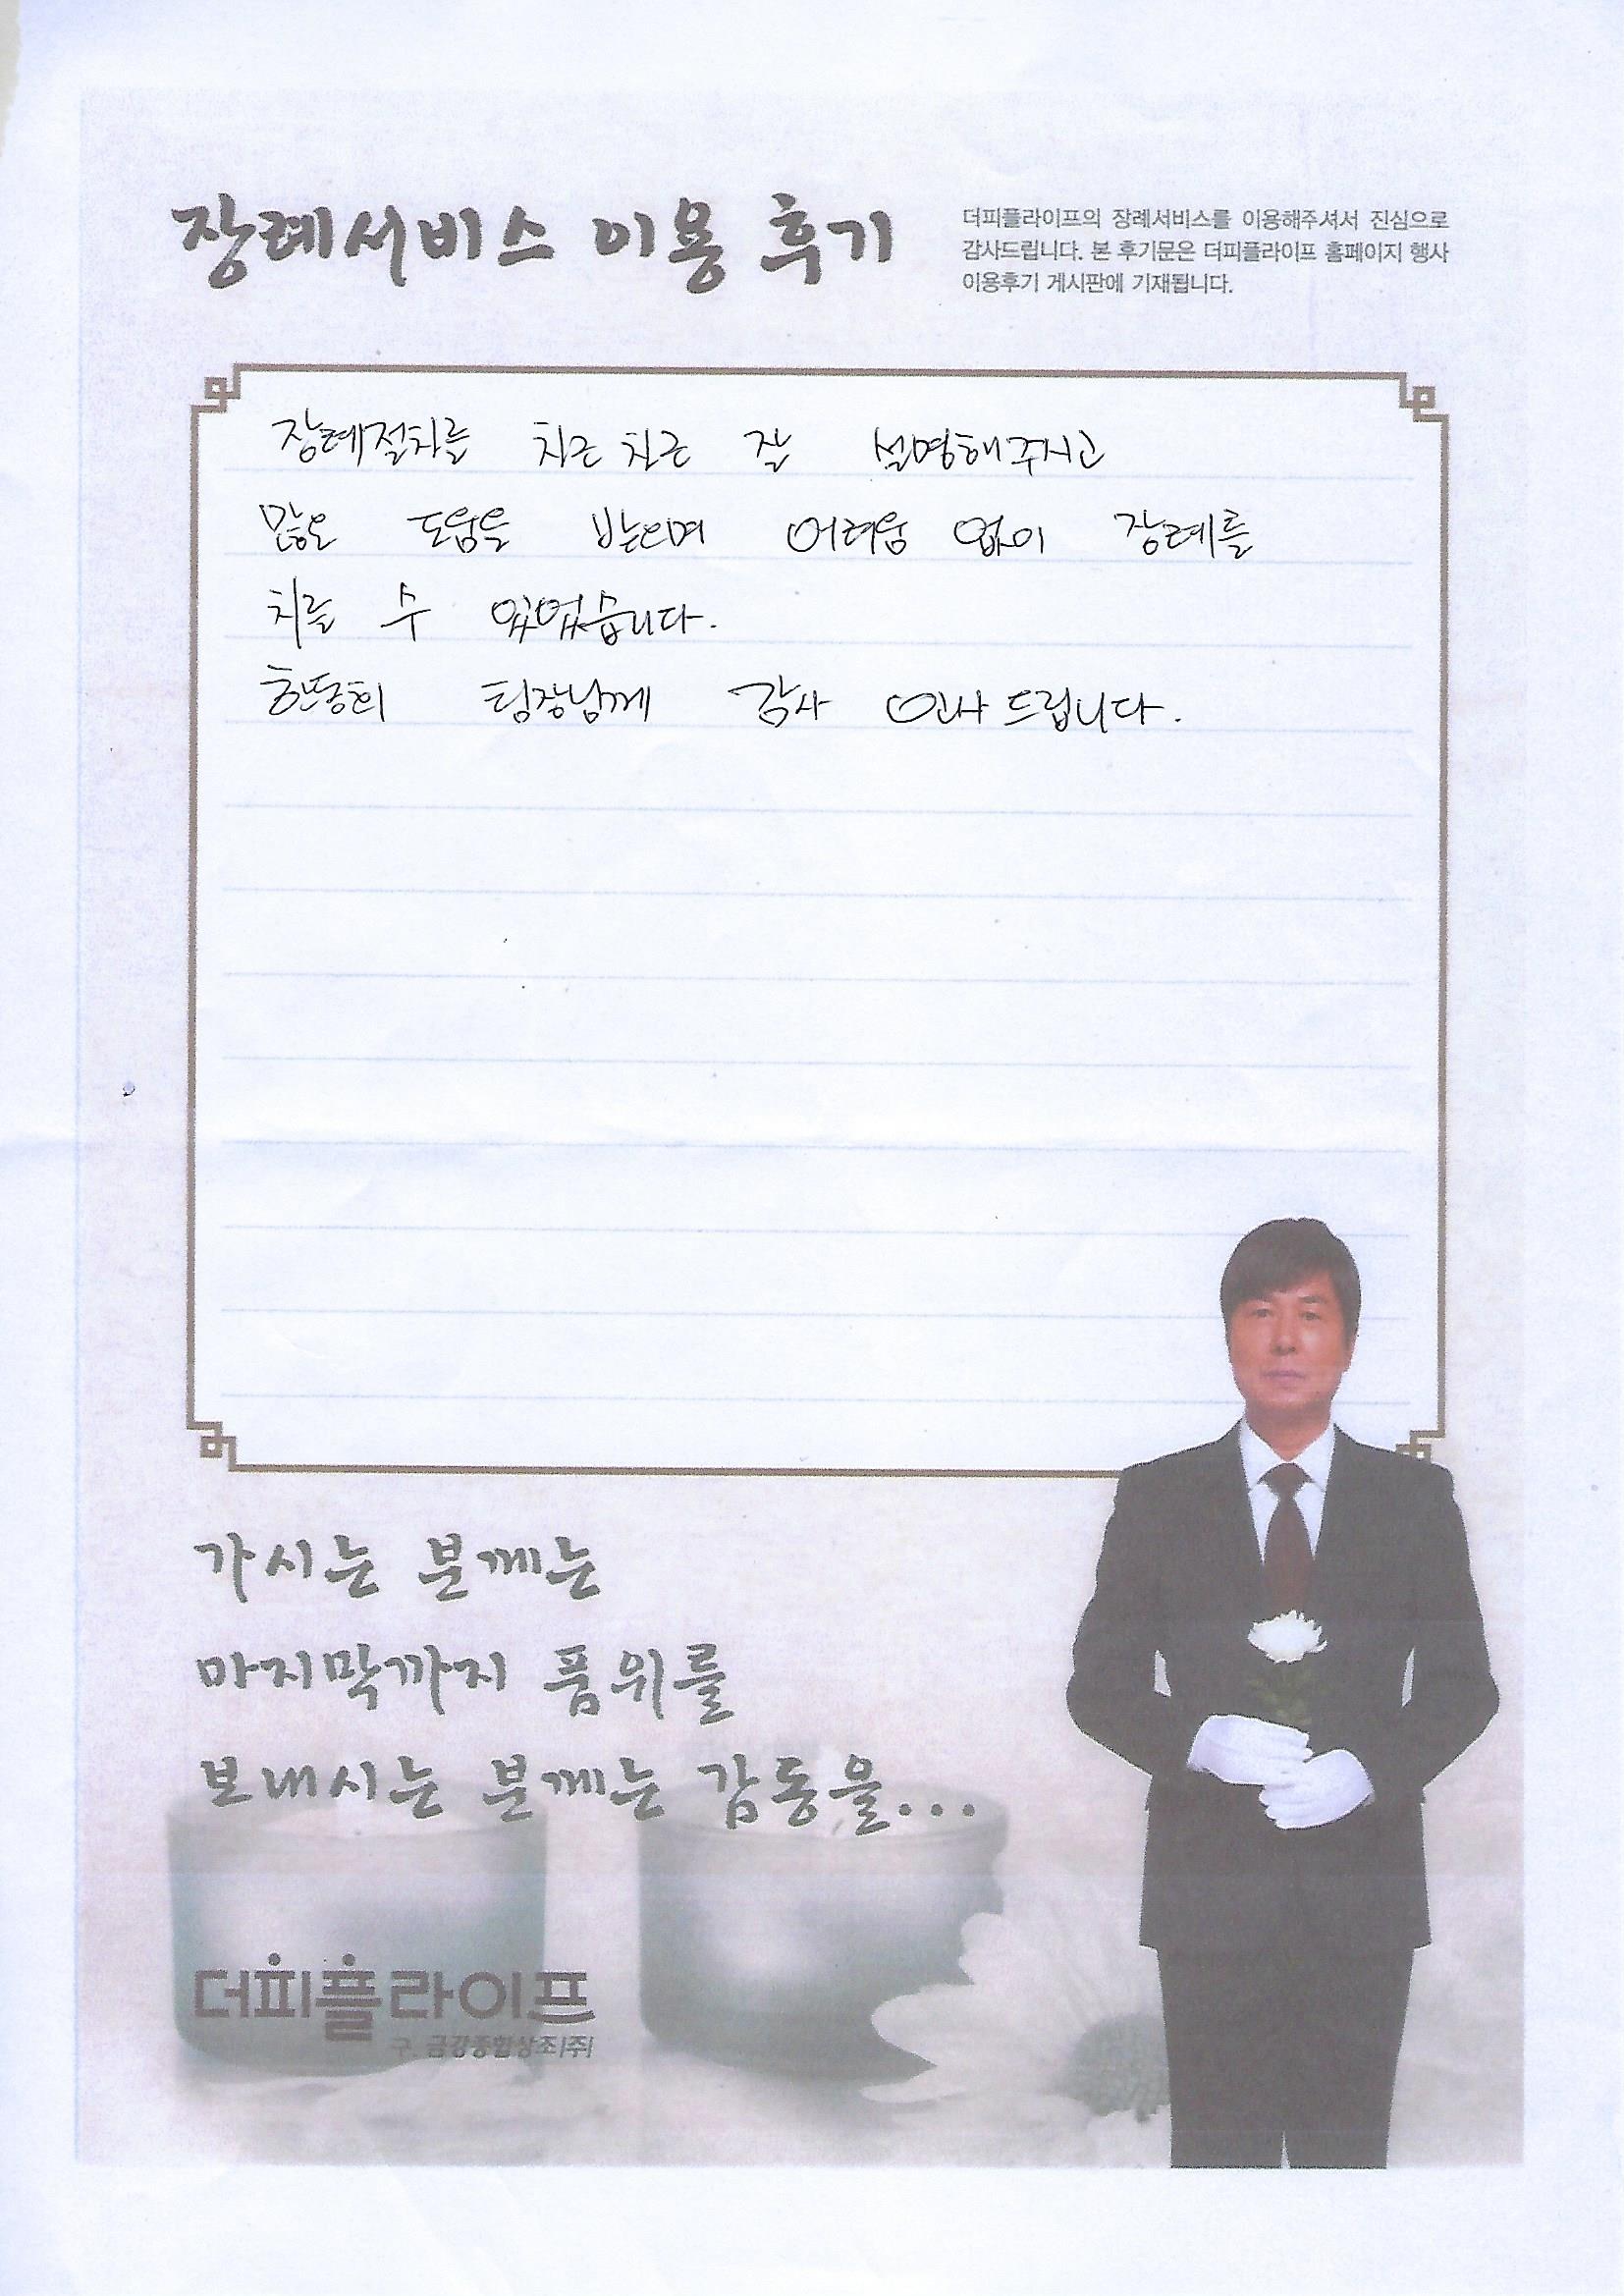 장례서비스 이용 후기
더피플라이프의 장례서비스를 이용해주셔서 진심으로
감사드립니다. 본 후기문은 더피플라이프 홈페이지 행사
이용후기 게시판에 기재됩니다.
장례절차를 차근차근 잘 설명해주시고
많은 도움을 받으며 어려움 없이 장례를
치를 수 있었습니다.
한동희 팀장님께 감사 인사드립니다.
가시는 분께는
마지막까지 품위를
보내시는 분께는 감동을...
더피플라이프
구. 금강종합상조(주)